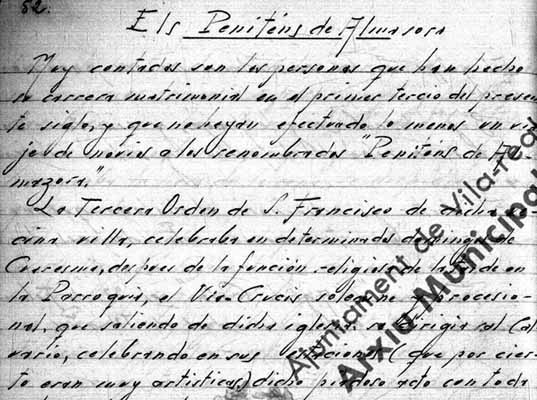 52.
Els Peniténs de Almasora
Muy contadas son las personas que han hecho
su carrera matrimonial en el primer tercio del presen-
te siglo, y que no hayan efectuado lo menos un via-
je de novios a los renombrados "Peniténs de Al-
mazora."
La Tercera Orden de S. Francisco de dicha ve-
cina villa, celebraba en determinados domingos de
Cuaresma, despues de la función religiosa de la tarde en
la Parroquia, el Via-Crucis solemne y procesio-
nal, que saliendo de dicha iglesia, se dirigia al Cal-
vario, celebrando en sus estaciones (que por cier-
to eran muy artisticas) dicho piadoso acto con toda
Ajuntament de Vila-real
Arxiu Municipal